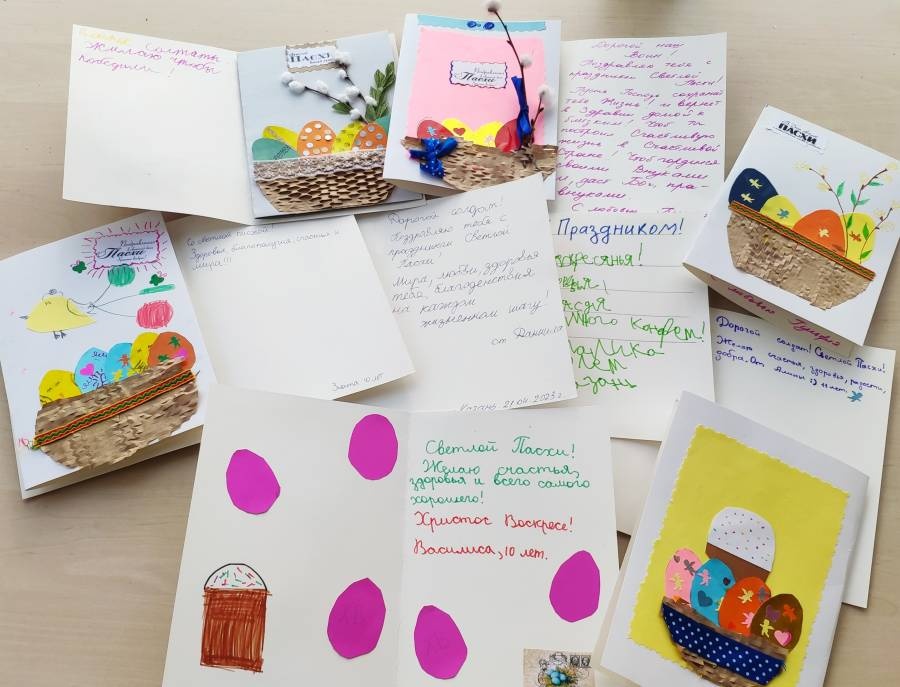 солдаты
Желаю чтобы
победили!
ПАСХИ
Пасхи
Дорогой наш
Воин!
Поздравляю тебя с
праздником Светлой
Пасхи!
Пусть Господь сохранит
тебе Жизнь! и вернет
в Здравии домой к
близким! Чтоб ты
построил Счастливую
жизнь в Счастливой
Стране! Чтоб гордился
своими Внуками
и, даст Бог, пра-
внуками.
С любовью
ПАСХИ
Пасхи
Со светлой пасхой!
Здоровья, благополучия, счастья и
мира!!!
Злата 10 лет
Дорогой солдат!
Поздравляю тебя с
праздником Светлой
Пасхи!
Мира, любви, здоровья
тебе, благоденствия
на каждом
жизненном шагу!
от Даниила
Казань 21.04.2023 г.
Праздником!
много конфет!
Дорогой солдат! Светлой Пасхи!
Желаю счастья, здоровья, радости,
добра. От Алины :) 11 лет.
Светлой Пасхи!
Желаю счастья,
здоровья и всего самого
хорошего!
Христос Воскресе!
Василиса, 10 лет.
ХВ
ХВ